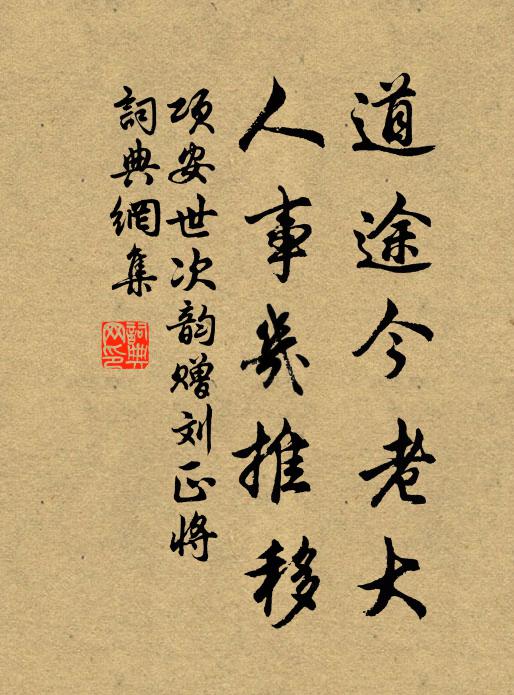 道途今老大
人事几推移
项安世次韵赠刘正将
詞典網集
詞典網印